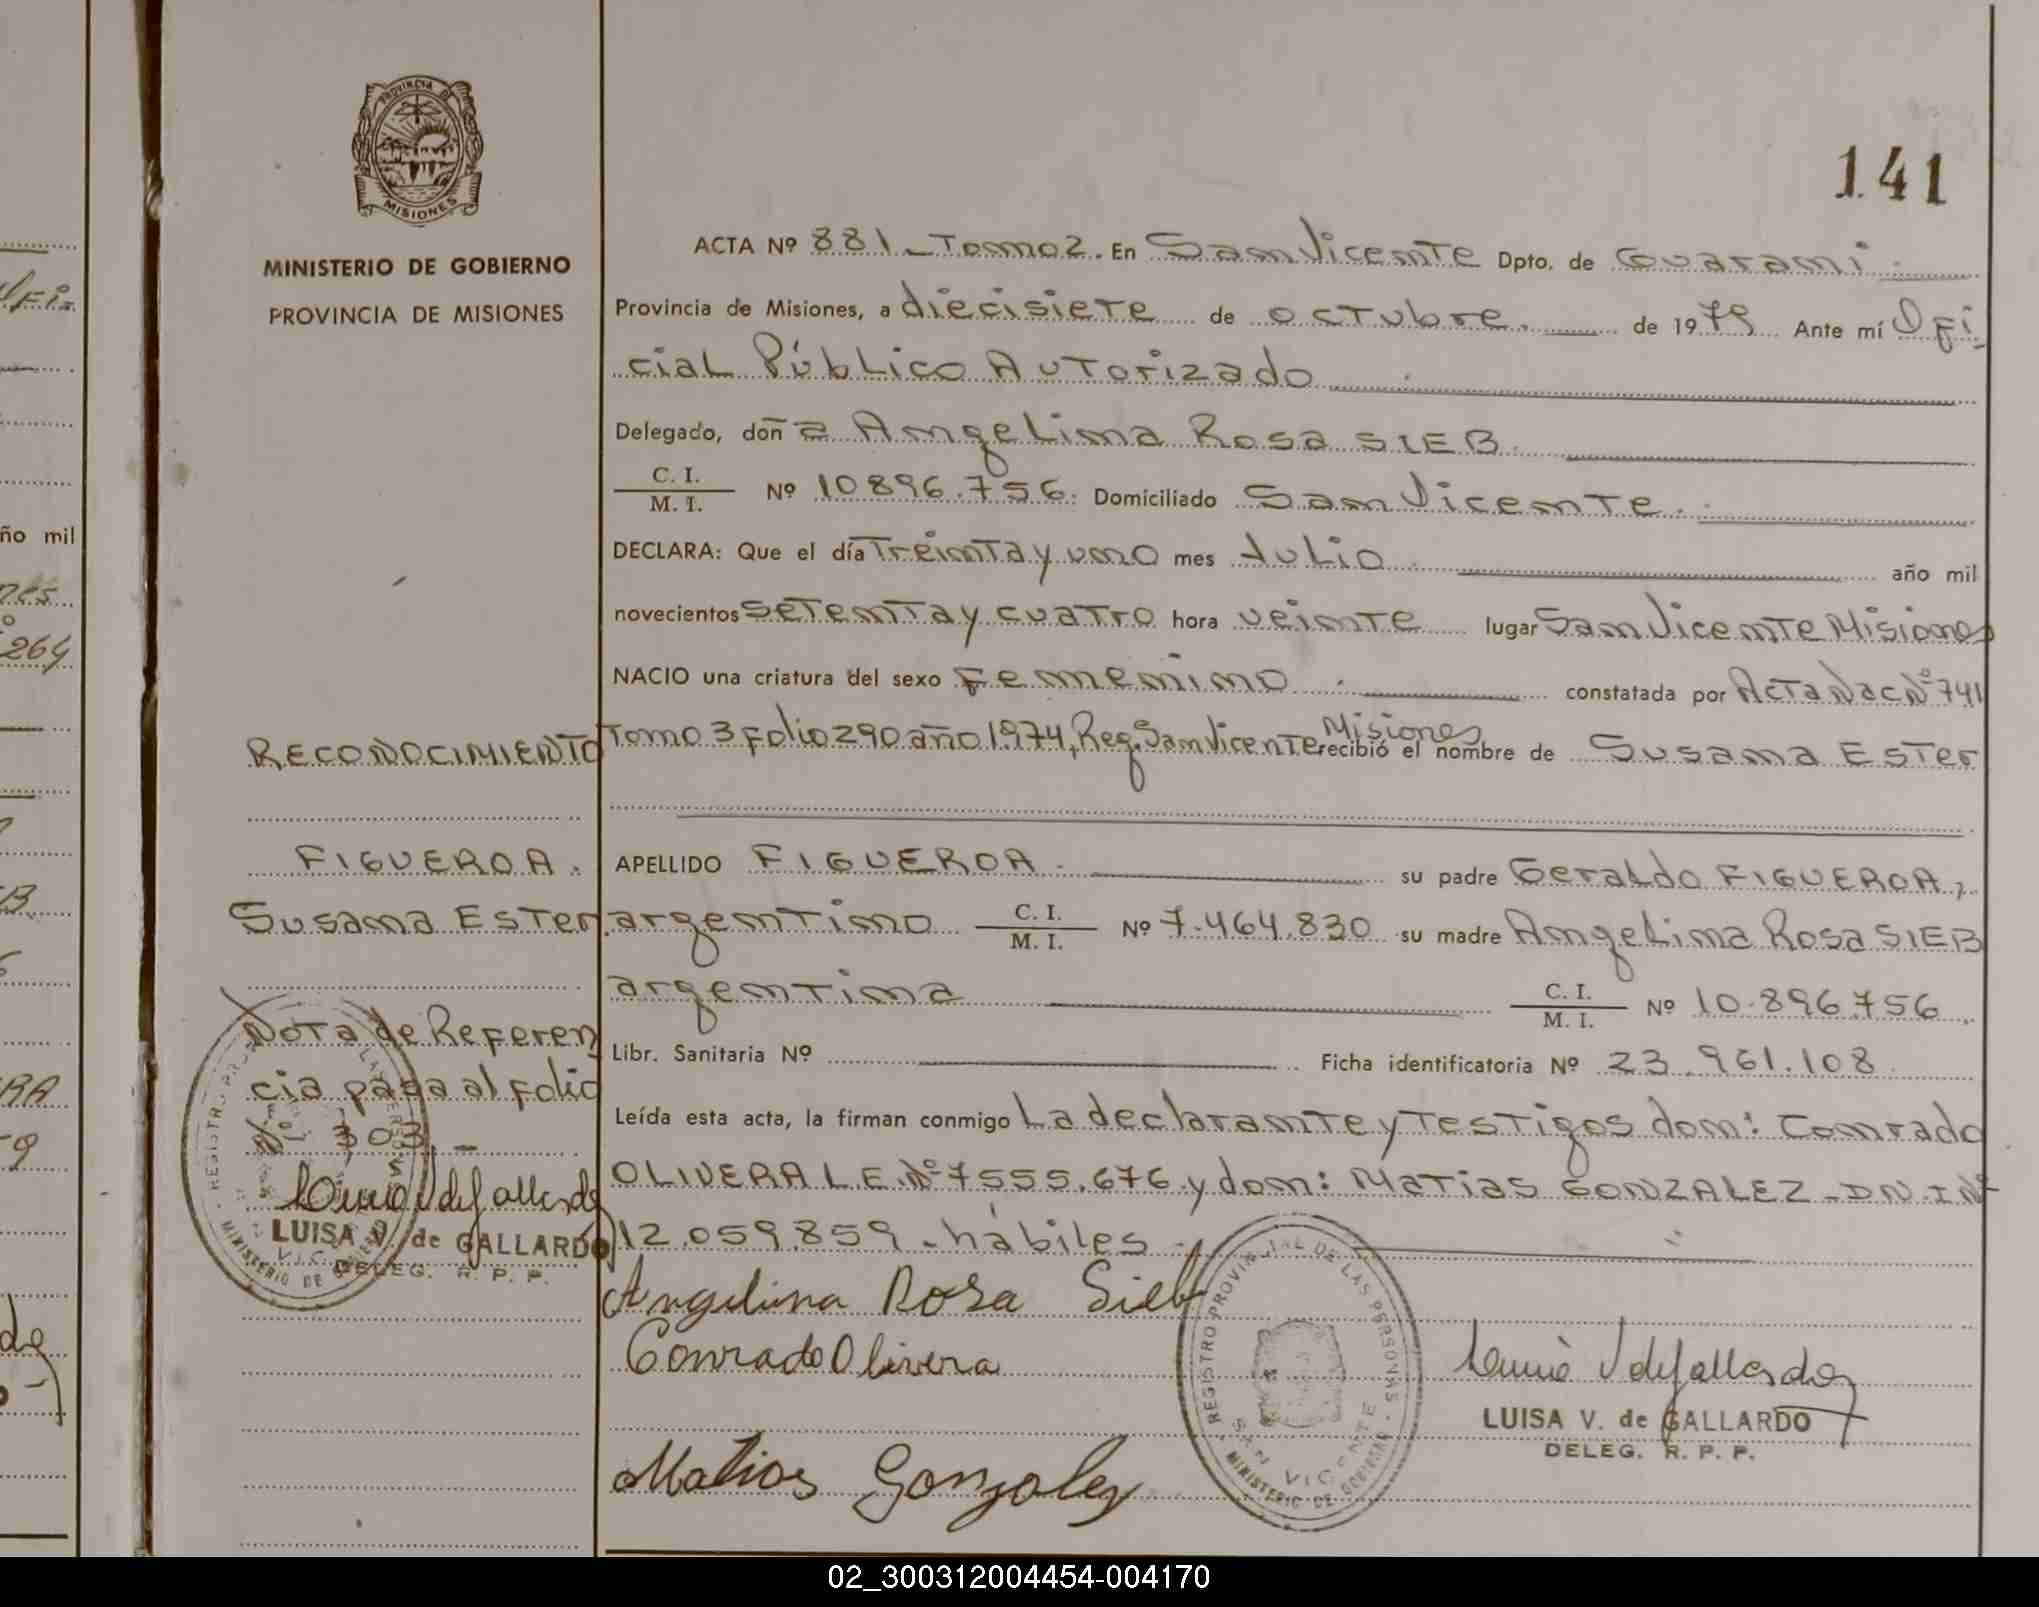 PROVINCIA DE
MISIONES
MINISTERIO DE GOBIERNO
PROVINCIA DE MISIONES
141
ACTA Nº 881 - Tomo 2. En San Vicente Dpto. de Guaraní
Provincia de Misiones, a diecisiete de octubre. de 1979 Ante mí Ofi
cial Público Autorizado
Delegado, doña Angelina Rosa SIEB.
C. I.
M. I. Nº 10896.756. Domiciliado San Vicente.
DECLARA: Que el día Treinta y uno mes Julio año mil
novecientos setenta y cuatro hora veinte lugar San Vicente Misiones
NACIO una criatura del sexo Femenino constatada por Acta Nac Nº 741
Tomo 3 folio 290 año 1974, Reg. San Vicente Misiones recibió el nombre de Susana Ester
APELLIDO FIGUEROA. su padre Geraldo FIGUEROA,
argentino C. I.
M. I. Nº 7.464.830 su madre Angelina Rosa SIEB
argentina C. I.
M. I. Nº 10.896.756.
Libr. Sanitaria Nº Ficha identificatoria Nº 23.961.108
Leída esta acta, la firman conmigo La declarante y Testigos don: Conrado
OLIVERA L.E. Nº 7555.676 y don: Matias GONZALEZ - D.N.I. Nº
12.059.859 - hábiles.
Angelina Rosa Sieb
Conrado Olivera
Matias Gonzalez
REGISTRO PROVINCIAL DE LAS PERSONAS
SAN VICENTE
MINISTERIO DE GOBIERNO
LUISA V. de GALLARDO
DELEG. R. P. P.
RECONOCIMIENTO
FIGUEROA.
Susana Ester.
Nota de Referen
cia pasa al folio
Nº 303. -
LUISA V. de GALLARDO
DELEG. R. P. P.
ño mil
264
02_300312004454-004170